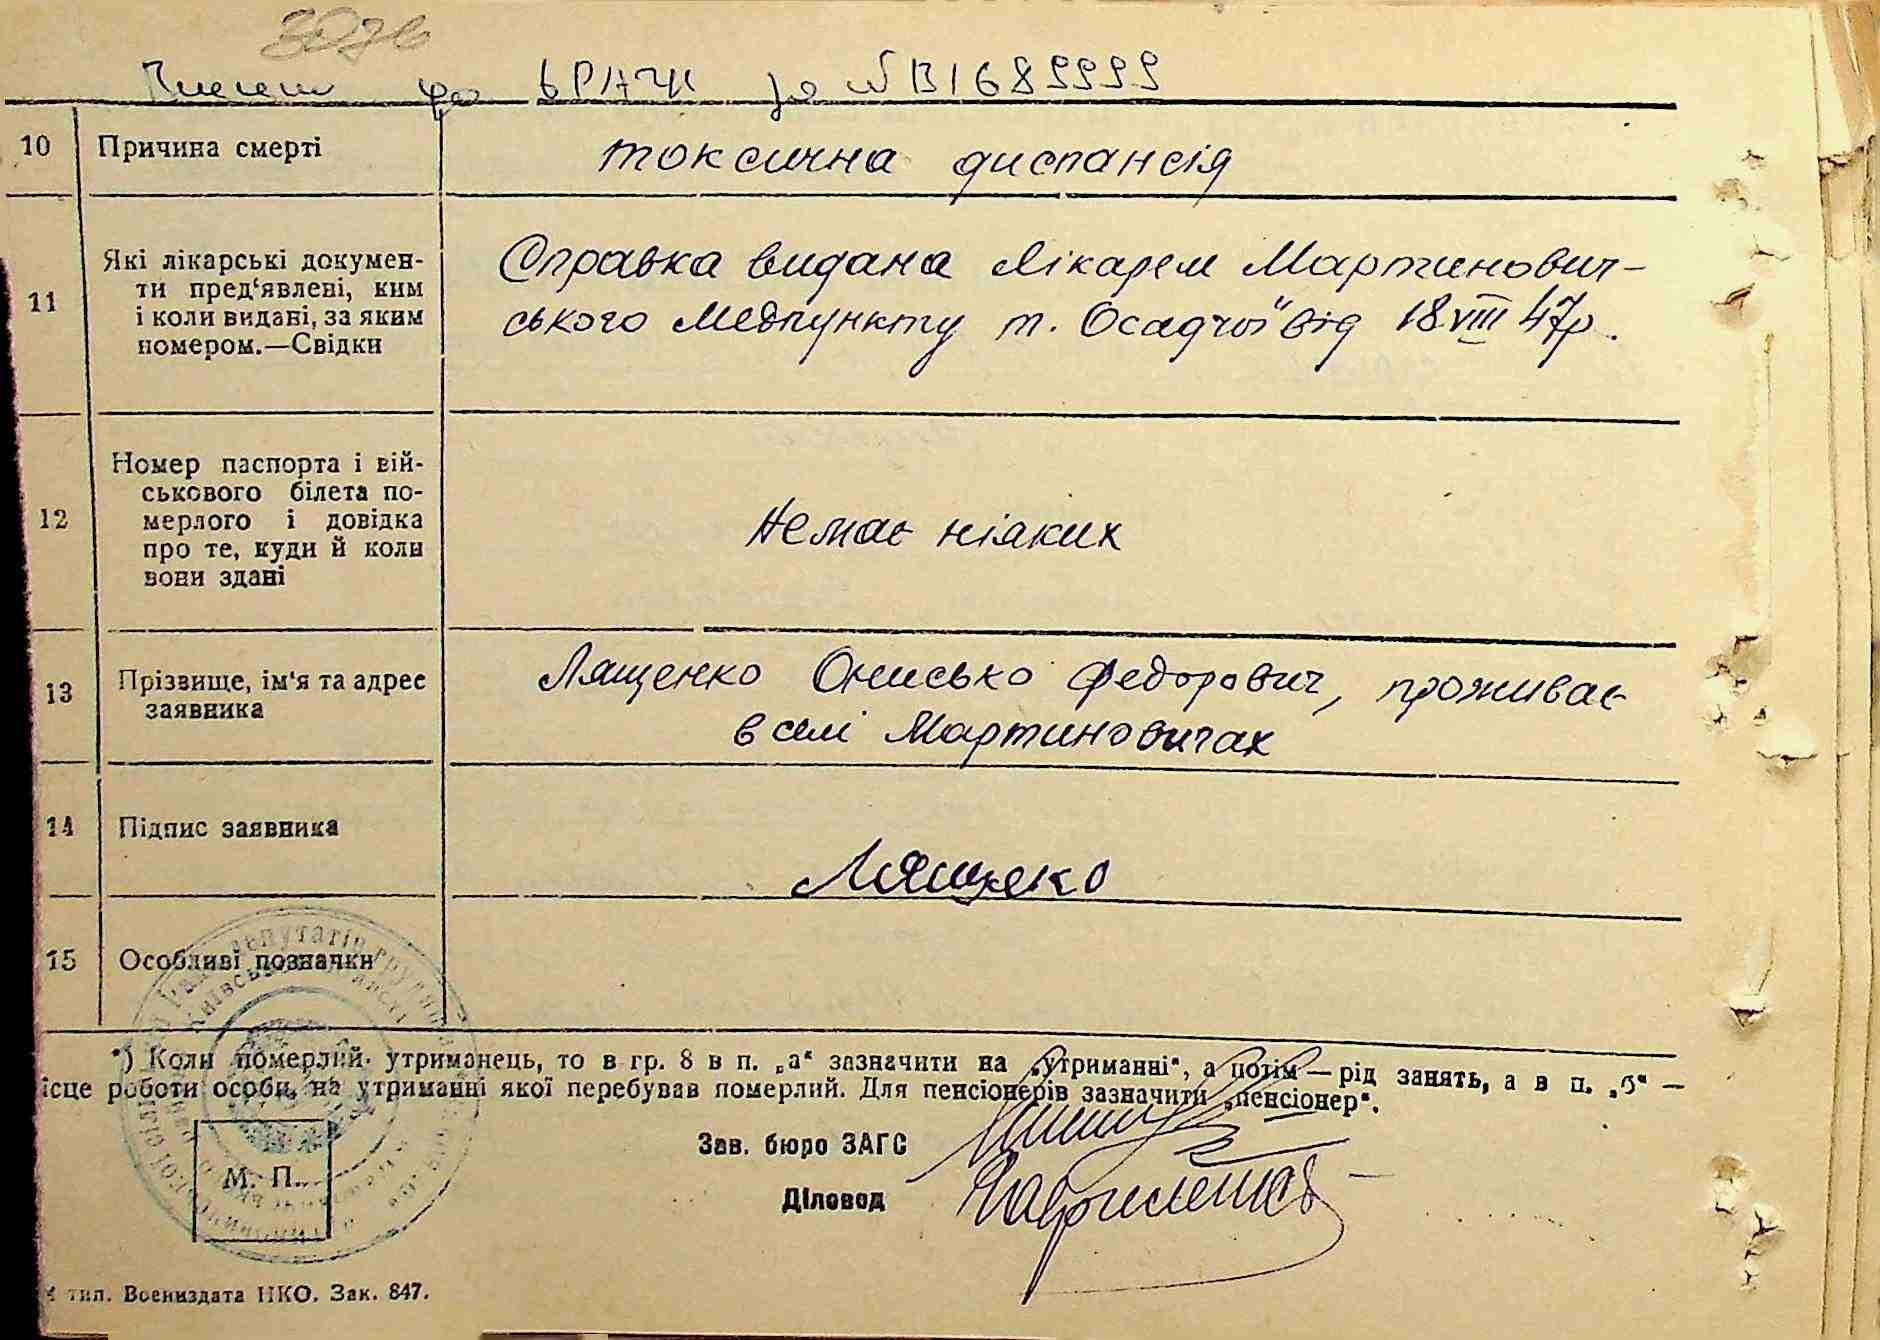 до ЬРАЧК за №В1689999
10 Причина смерті
токсична диспансія
11 Які лікарські докумен-
ти пред'явлені, ким
і коли видані, за яким
номером.—Свідки
Справка видана лікарем Мартинович-
ського Медпункту т. Осадчої від 18 VIII 47р.
12 Номер паспорта і вій-
ськового білета по-
мерлого і довідка
про те, куди й коли
вони здані
немає ніяких
13 Прізвище, ім'я та адрес
заявника
Лященко Онисько Федорович, проживає
в селі Мартиновичах
14 Підпис заявника
Лященко
15 Особливі позначки
*) Коли померлий утриманець, то в гр. 8 в п. „а“ зазначити на „утриманні“, а потім — рід занять, а в п. „б“ —
ісце роботи особи, на утриманні якої перебував померлий. Для пенсіонерів зазначити „пенсіонер“.
Зав. бюро ЗАГС
Діловод
М. П.
тип. Воениздата НКО. Зак. 847.